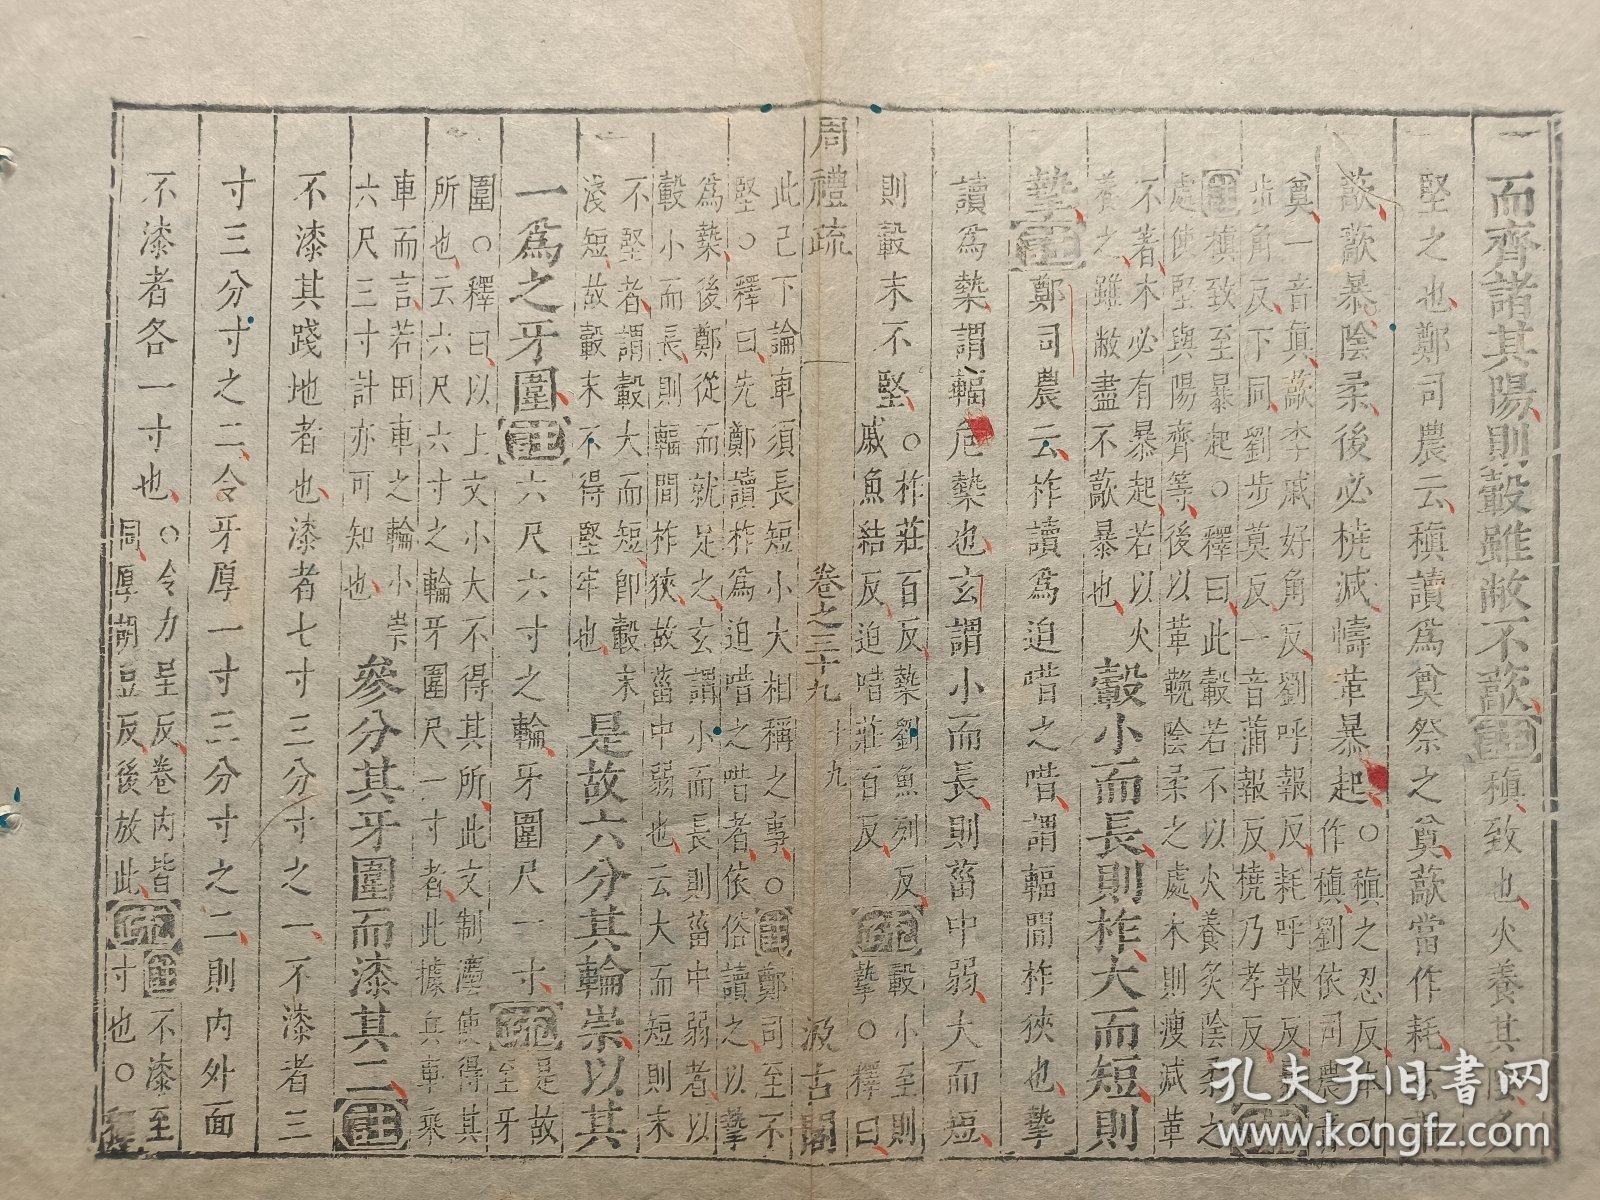 而齊諸其陽則轂雖敝不藃注稹致也火養其陰
堅之也鄭司農云稹讀爲奠祭之奠藃當作耗
藃藃暴陰柔後必橈減幬革暴起○稹之忍反
作稹劉依司農
奠一音真藃李戚好角反劉呼報反耗呼報反
步角反下同劉步莫反一音蒲報反橈乃孝反
注稹致至暴起○釋曰此轂若不以火養炙陰柔之
處使堅與陽齊等後以革鞔陰柔之處木則瘦減革
不著木必有暴起若以火
養之雖敝盡不藃暴也
轂小而長則柞大而短則
摯注鄭司農云柞讀爲迫唶之唶謂輻間柞狹也摯
讀爲槷謂輻危槷也玄謂小而長則菑中弱大而短
則轂末不堅○柞莊百反槷劉魚列反
戚魚結反迫唶莊百反
疏轂小至則
摯○釋曰
周禮疏 卷之三十九 十九 汲古閣
此已下論車須長短小大相稱之事○注鄭司至不
堅○釋曰先鄭讀柞爲迫唶之唶者依俗讀之以摯
爲槷後鄭從而就足之玄謂小而長則菑中弱者以
轂小而長則輻間柞狹故菑中弱也云大而短則末
不堅者謂轂大而短卽轂末
淺短故轂末不得堅牢也
是故六分其輪崇以其
一爲之牙圍注六尺六寸之輪牙圍尺一寸疏是故
至牙
圍○釋曰以上文小大不得其所此文制灋使得其
所也云六尺六寸之輪牙圍尺一寸者此據兵車乘
車而言若田車之輪小崇
六尺三寸計亦可知也
參分其牙圍而漆其二注
不漆其踐地者也漆者七寸三分寸之一不漆者三
寸三分寸之二令牙厚一寸三分寸之二則內外面
不漆者各一寸也○令力呈反卷內皆
同厚胡豆反後放此
疏注不漆至
寸也○釋
孔夫子旧书网
www.kongfz.com